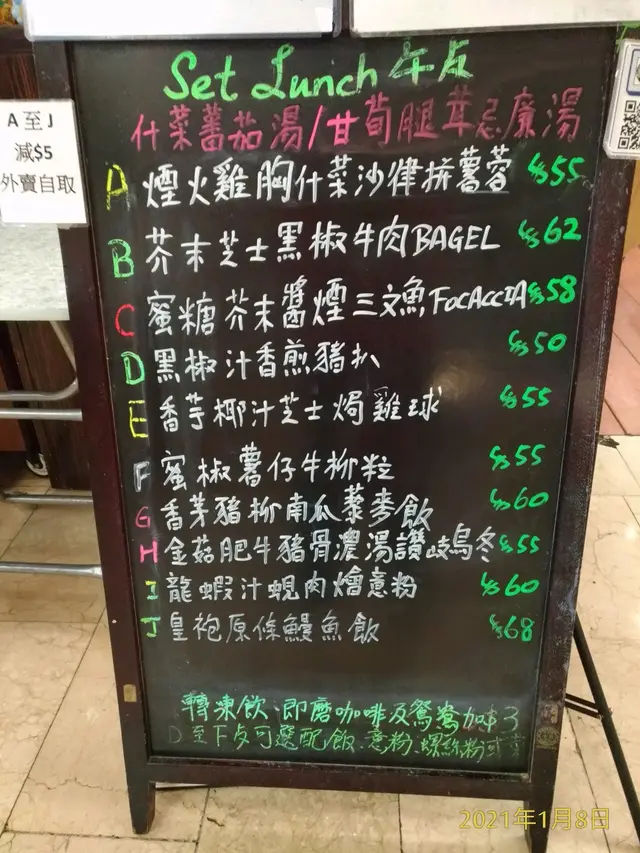 Set Lunch 午飯
什菜蕃茄湯/甘荀腿茸忌廉湯
A至J
減$5
外賣自取
A 煙火雞胸什菜沙律拼薯蓉 $55
B 芥末芝士黑椒牛肉BAGEL $62
C 蜜糖芥末醬煙三文魚FOCACCIA $58
D 黑椒汁香煎豬扒 $50
E 香芋椰汁芝士焗雞球 $55
F 蜜椒薯仔牛柳粒 $55
G 香茅豬柳南瓜藜麥飯 $60
H 金菇肥牛豬骨濃湯讚岐烏冬 $55
I 龍蝦汁蜆肉燴意粉 $60
J 皇袍原條鰻魚飯 $68
轉凍飲、即磨咖啡及鴛鴦加$3
D至F皮可選配飯、意粉、螺絲粉或薯
2021年1月8日